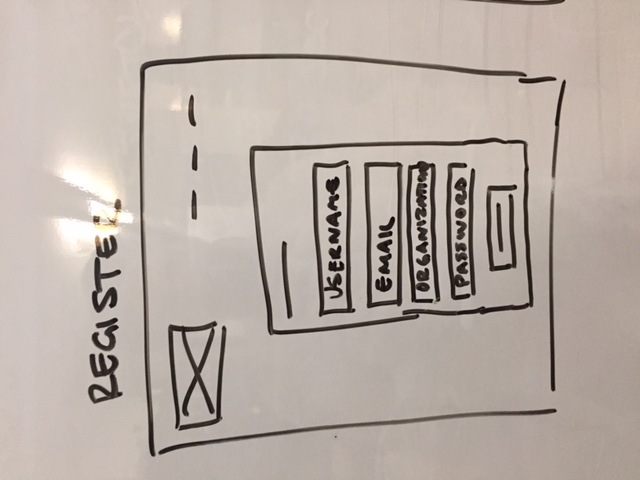 REGISTER
USERNAME
EMAIL
ORGANIZATION
PASSWORD